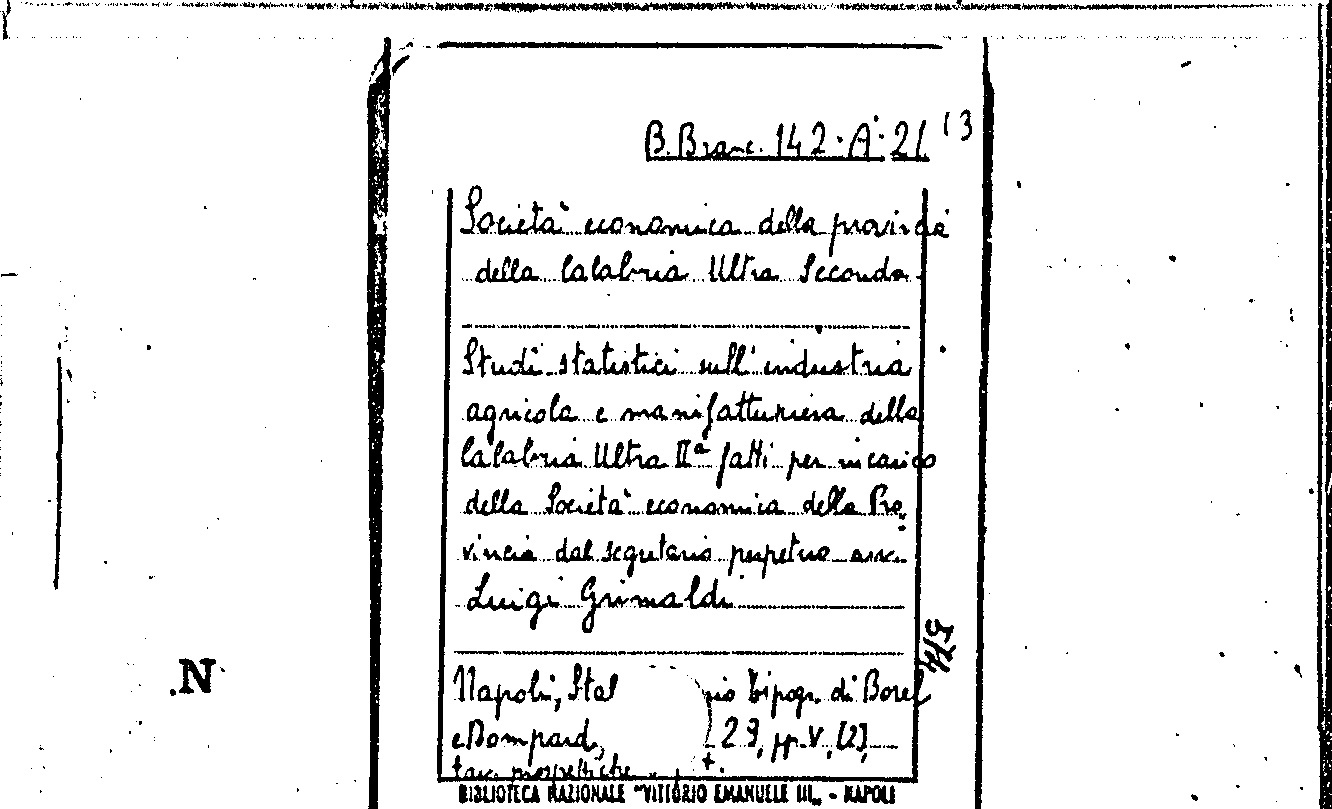 B. Branc. 142. A. 21 13
Società economica della provincia
della Calabria Ultra Seconda.
Studi statistici sull'industria
agricola e manifatturiera della
Calabria Ultra IIª fatti per incarico
della Società economica della Pro,
vincia dal segretario perpetuo avv.
Luigi Grimaldi
Napoli, Stab rio tipogr. di Borel
e Bompard, 29, pp. V, [2],
tav. prospettiche
BIBLIOTECA NAZIONALE "VITTORIO EMANUELE III„ - NAPOLI
.N